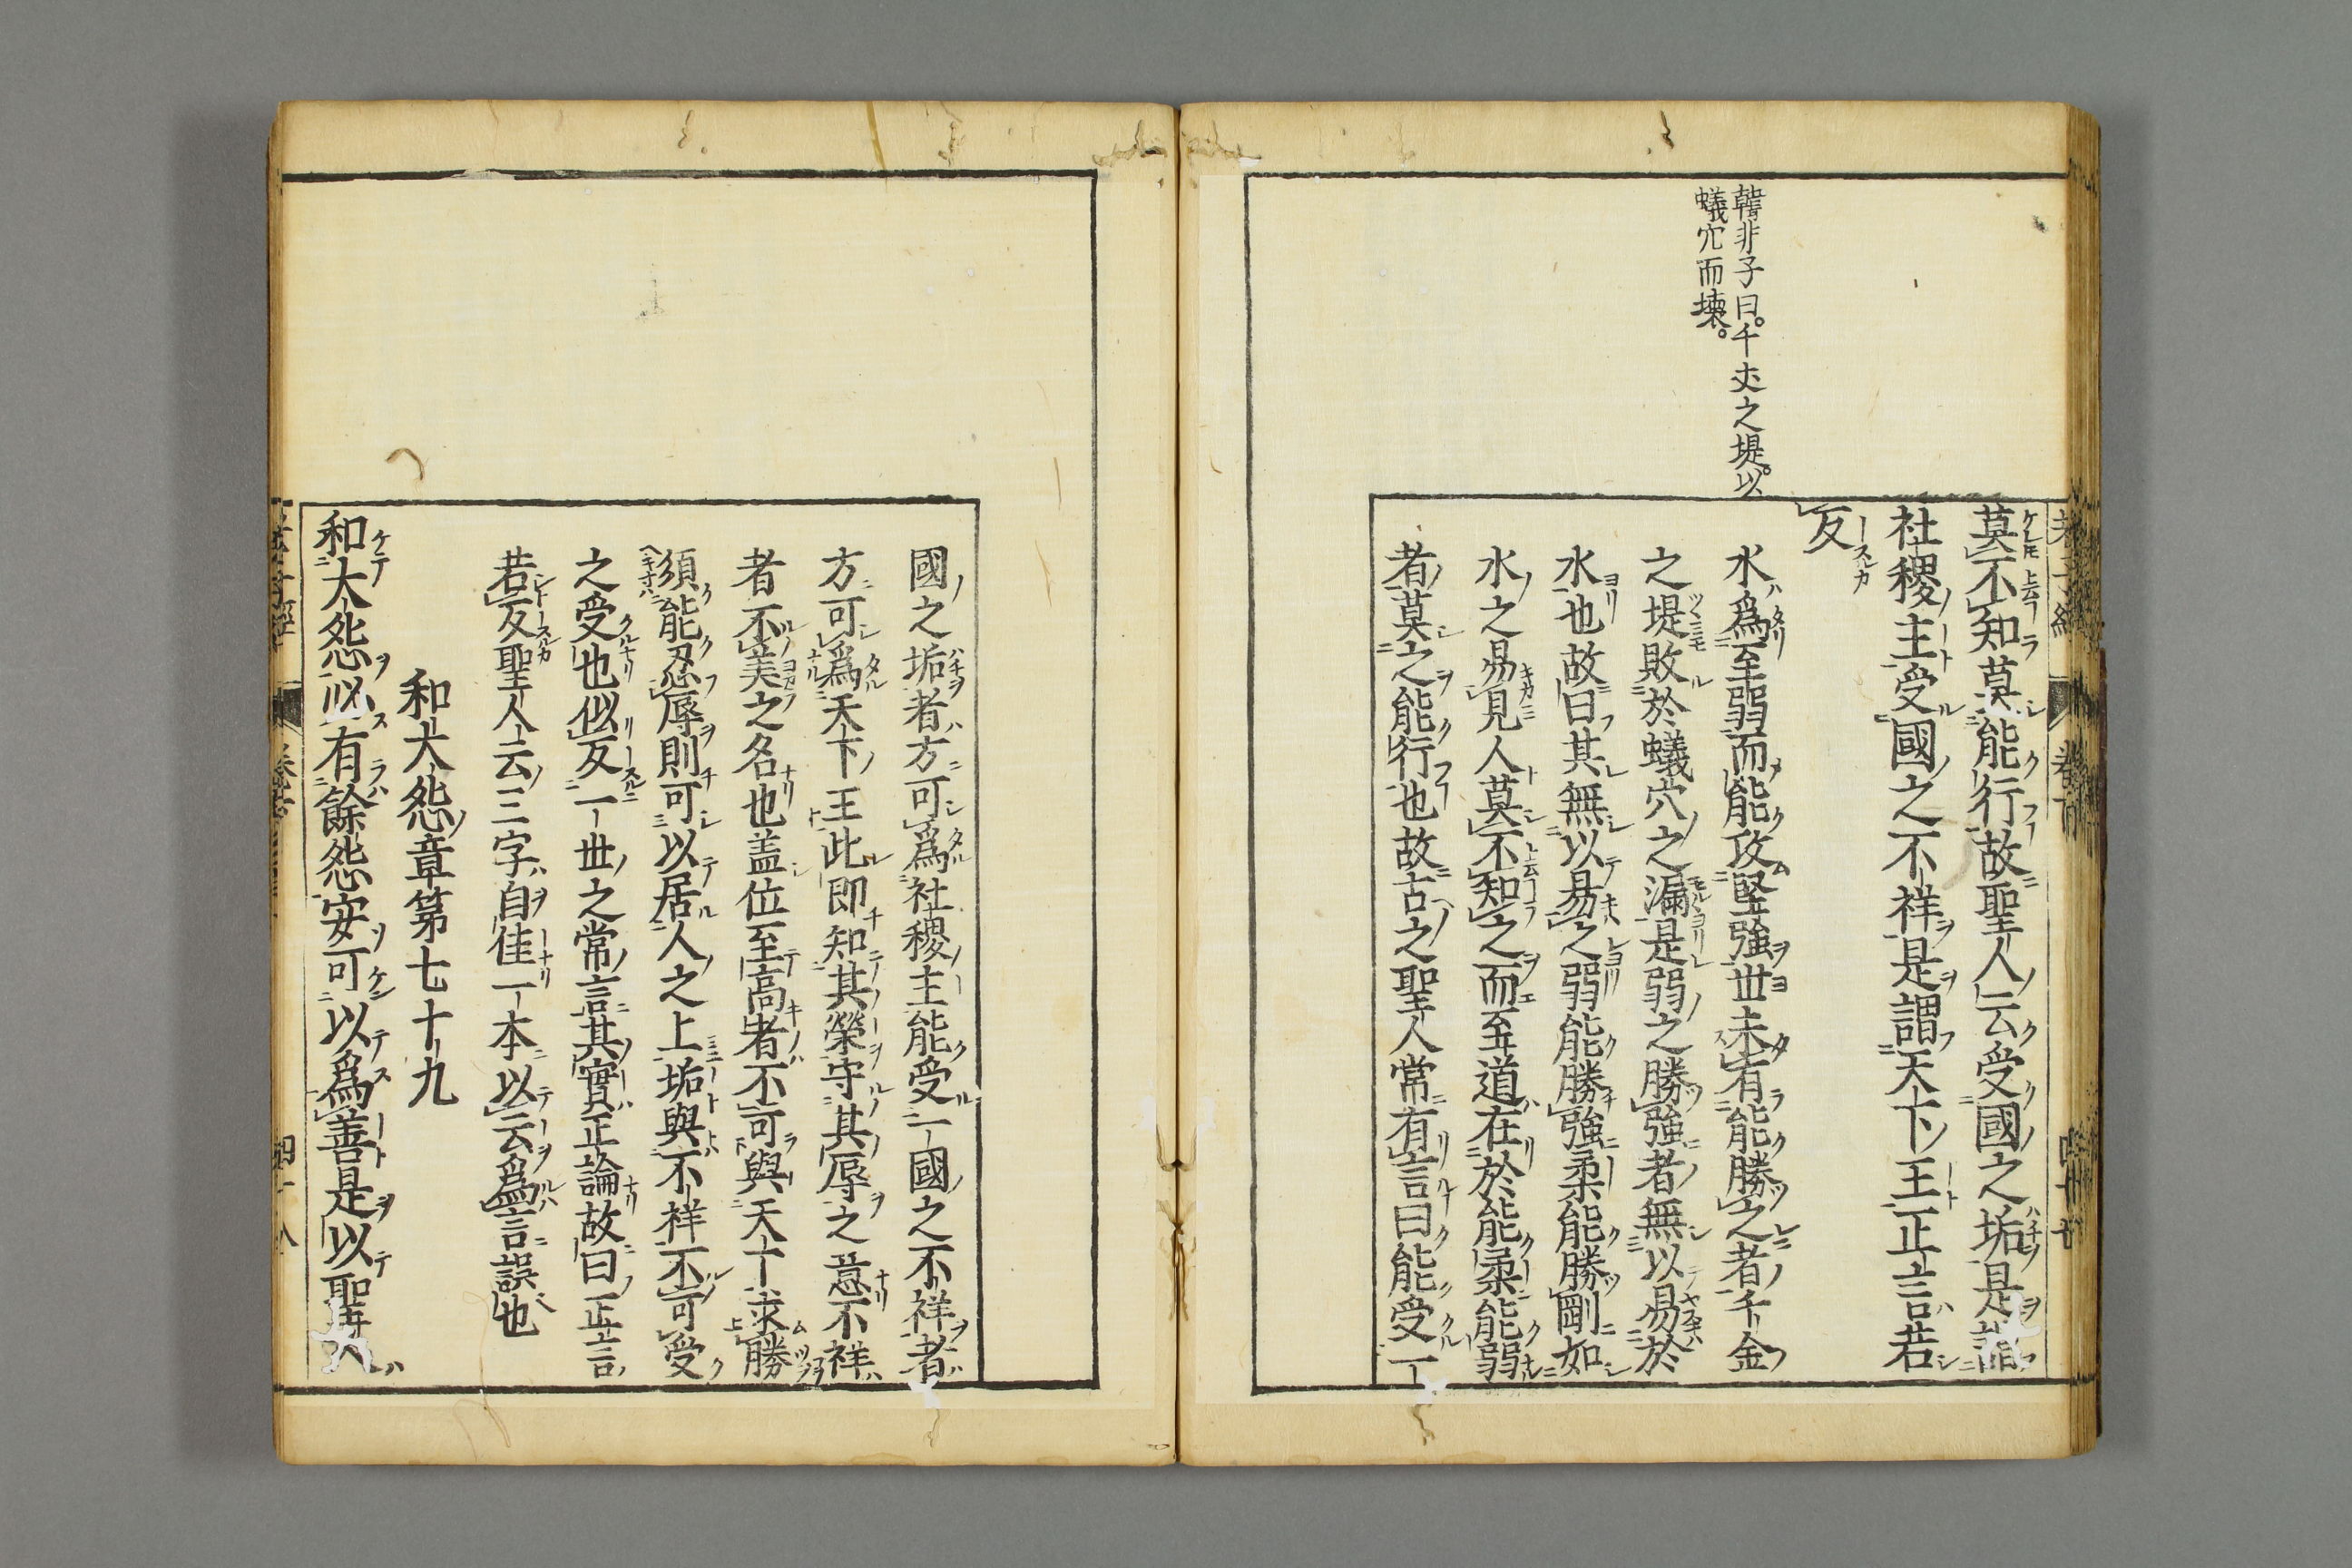 韓非子曰。千丈之堤。以
蟻穴而壊。
莫不知莫能行故聖人云受國之垢是謂
社稷主受國之不祥是謂天下王正言若
反
水為至弱而能攻堅強世未有能勝之者千金
之堤敗於蟻穴之漏是弱之勝強者無以易於
水也故曰其無以易之弱能勝強柔能勝剛如
水之易見人莫不知之而至道在於能柔能弱
者莫之能行也故古之聖人常有言曰能受一
國之垢者方可為社稷主能受一國之不祥者
方可為天下王此即知其榮守其辱之意不祥
者不美之名也盖位至高者不可與天下求勝
須能忍辱則可以居人之上垢與不祥不可受
之受也似反一世之常言其實正論故曰正言
若反聖人云三字自佳一本以云為言誤也
和大怨章第七十九
和大怨必有餘怨安可以為善是以聖人